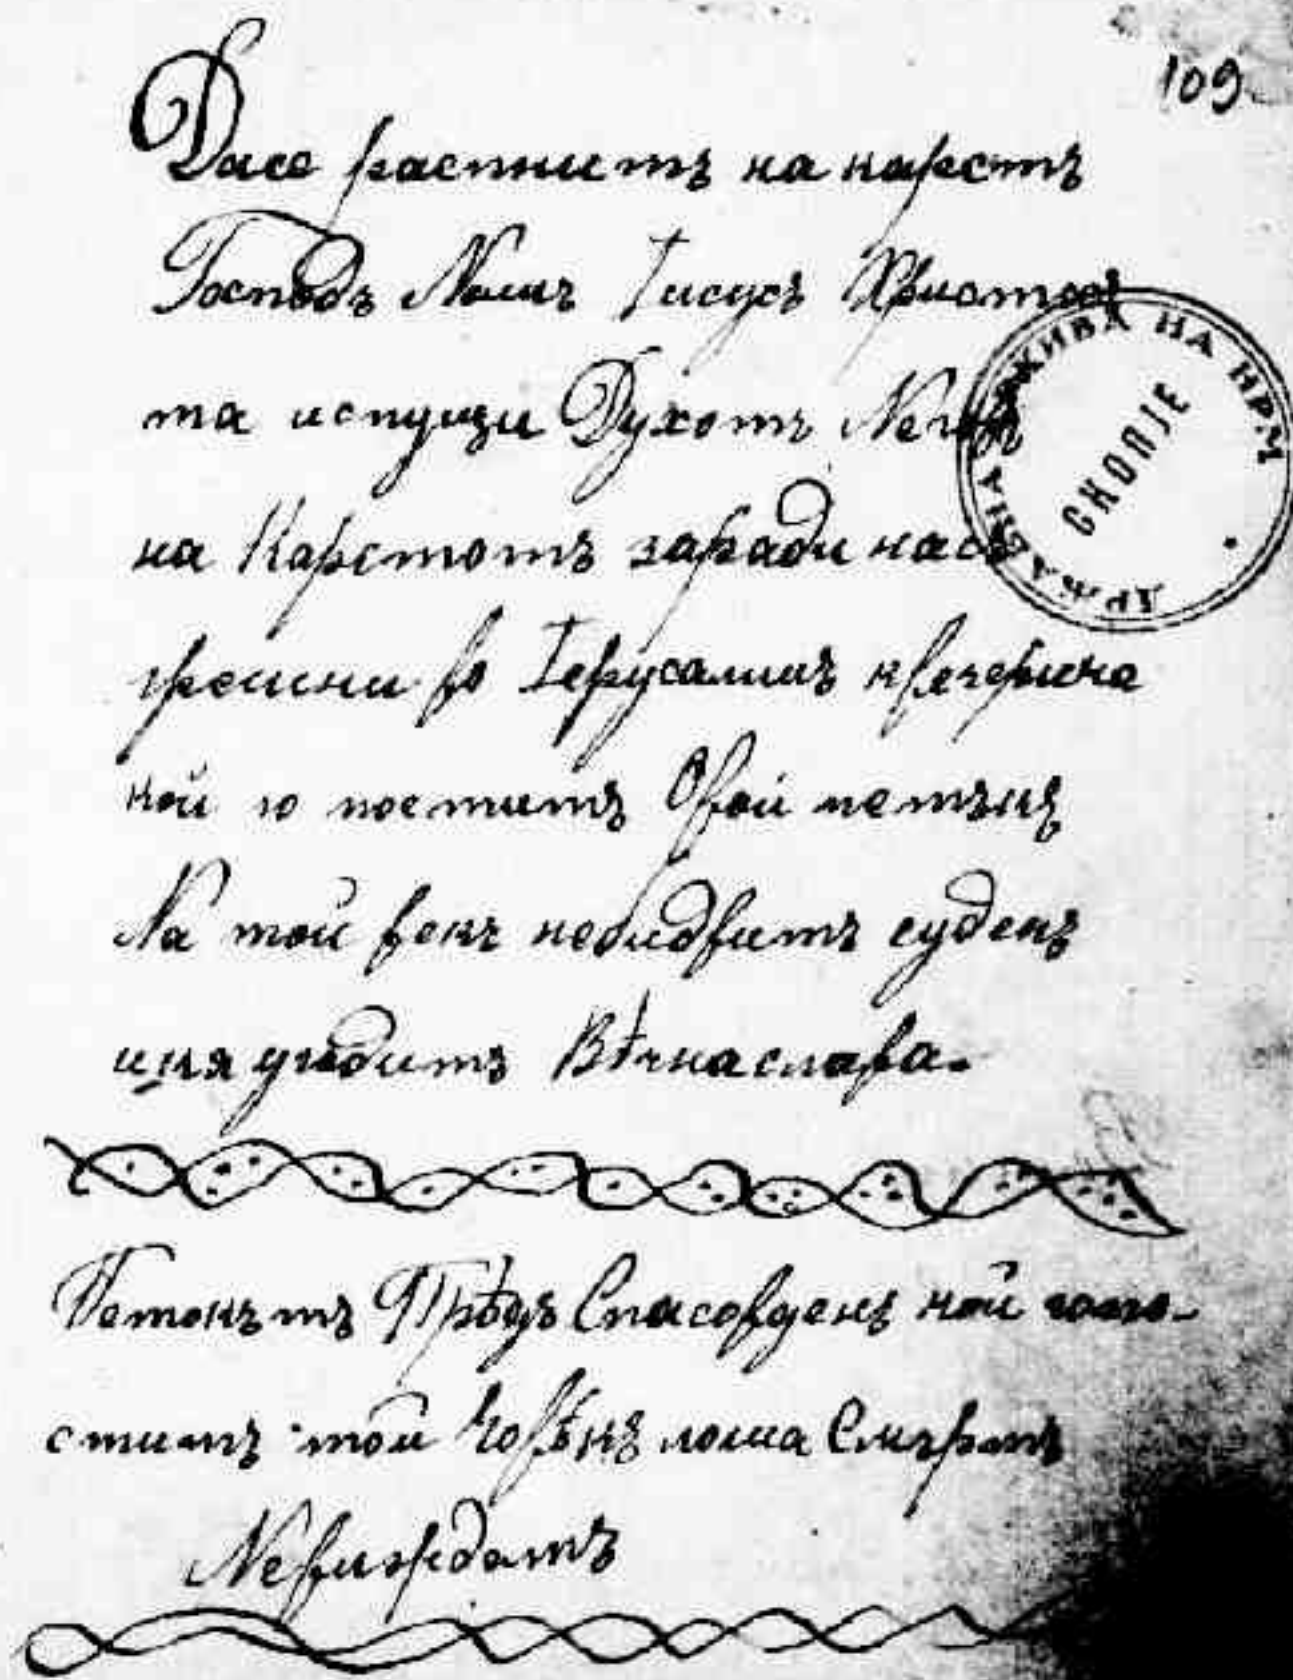 109
Дасе распнитъ на карстъ
Господъ Нашъ Іисусъ Христосъ
та испущи Духотъ Неговъ
на Карстотъ заради насъ
грешни во Іерусалимъ
кой ю поститъ Овой петъкъ
На той векъ небидвитъ суденъ
Вѣчна слава.
Петокътъ Прѣдъ Спасовденъ кой гопо-
ститъ той Човѣкъ лоша Смъртъ
Невиждатъ
ДРЖАВНА АРХИВА НА НРМ
СКОПЈЕ